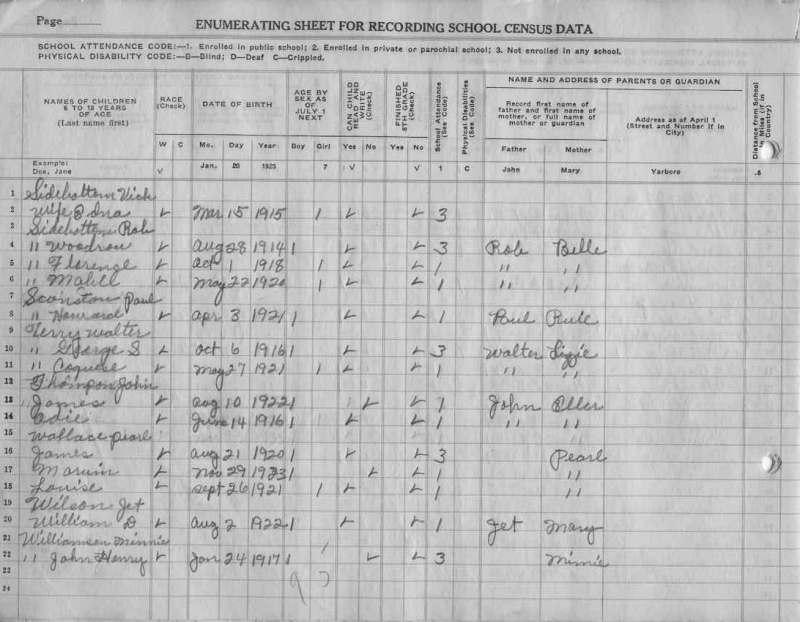 Page
ENUMERATING SHEET FOR RECORDING SCHOOL CENSUS DATA
SCHOOL ATTENDANCE CODE:—1. Enrolled in public school; 2. Enrolled in private or parochial school; 3. Not enrolled in any school.
PHYSICAL DISABILITY CODE:—B—Blind; D—Deaf C—Crippled.
NAMES OF CHILDREN 6 to 18 YEARS OF AGE (Last name first)
RACE (Check)
W C
DATE OF BIRTH
Mo. Day Year
AGE BY SEX AS OF JULY 1 NEXT
Boy Girl
CAN CHILD READ AND WRITE (Check)
Yes No
FINISHED 8TH GRADE (Check)
Yes No
School Attendance (See Code)
Physical Disabilities (See Code)
NAME AND ADDRESS OF PARENTS OR GUARDIAN
Record first name of father and first name of mother, or full name of mother or guardian
Father Mother
Address as of April 1 (Street and Number if in City)
Distance from School in Miles (if in Country)
Example: Doe, Jane V Jan. 20 1925 7 V V 1 C John Mary Yarboro .5
1 Sidebottom
2 Wife Edna Mar 15 1915 1 3
3 Sidebottom Rob
4 " Woodrow Aug 28 1914 1 3 Rob Belle
5 " Florence Oct 1 1918 1 1 " "
6 " May 22 1920 1 1 " "
7 Paul
8 " Howard Apr 3 1921 1 1 Paul
9 Terry Walter
10 " George S Oct 6 1916 1 3 Walter Lizzie
11 " May 27 1921 1 1 " "
12 Thompson John
13 " James Aug 10 1922 1 1 John
14 Adie June 14 1916 1 1 " "
15 Wallace Pearl
16 James Aug 21 1920 1 3 Pearl
17 Nov 29 1923 1 1 "
18 Louise Sept 26 1921 1 1 "
19 Wilson Jet
20 William D Aug 2 1922 1 1 Jet Mary
21 Williamson Minnie
22 " John Henry Jan 24 1917 1 3 Minnie
23
24